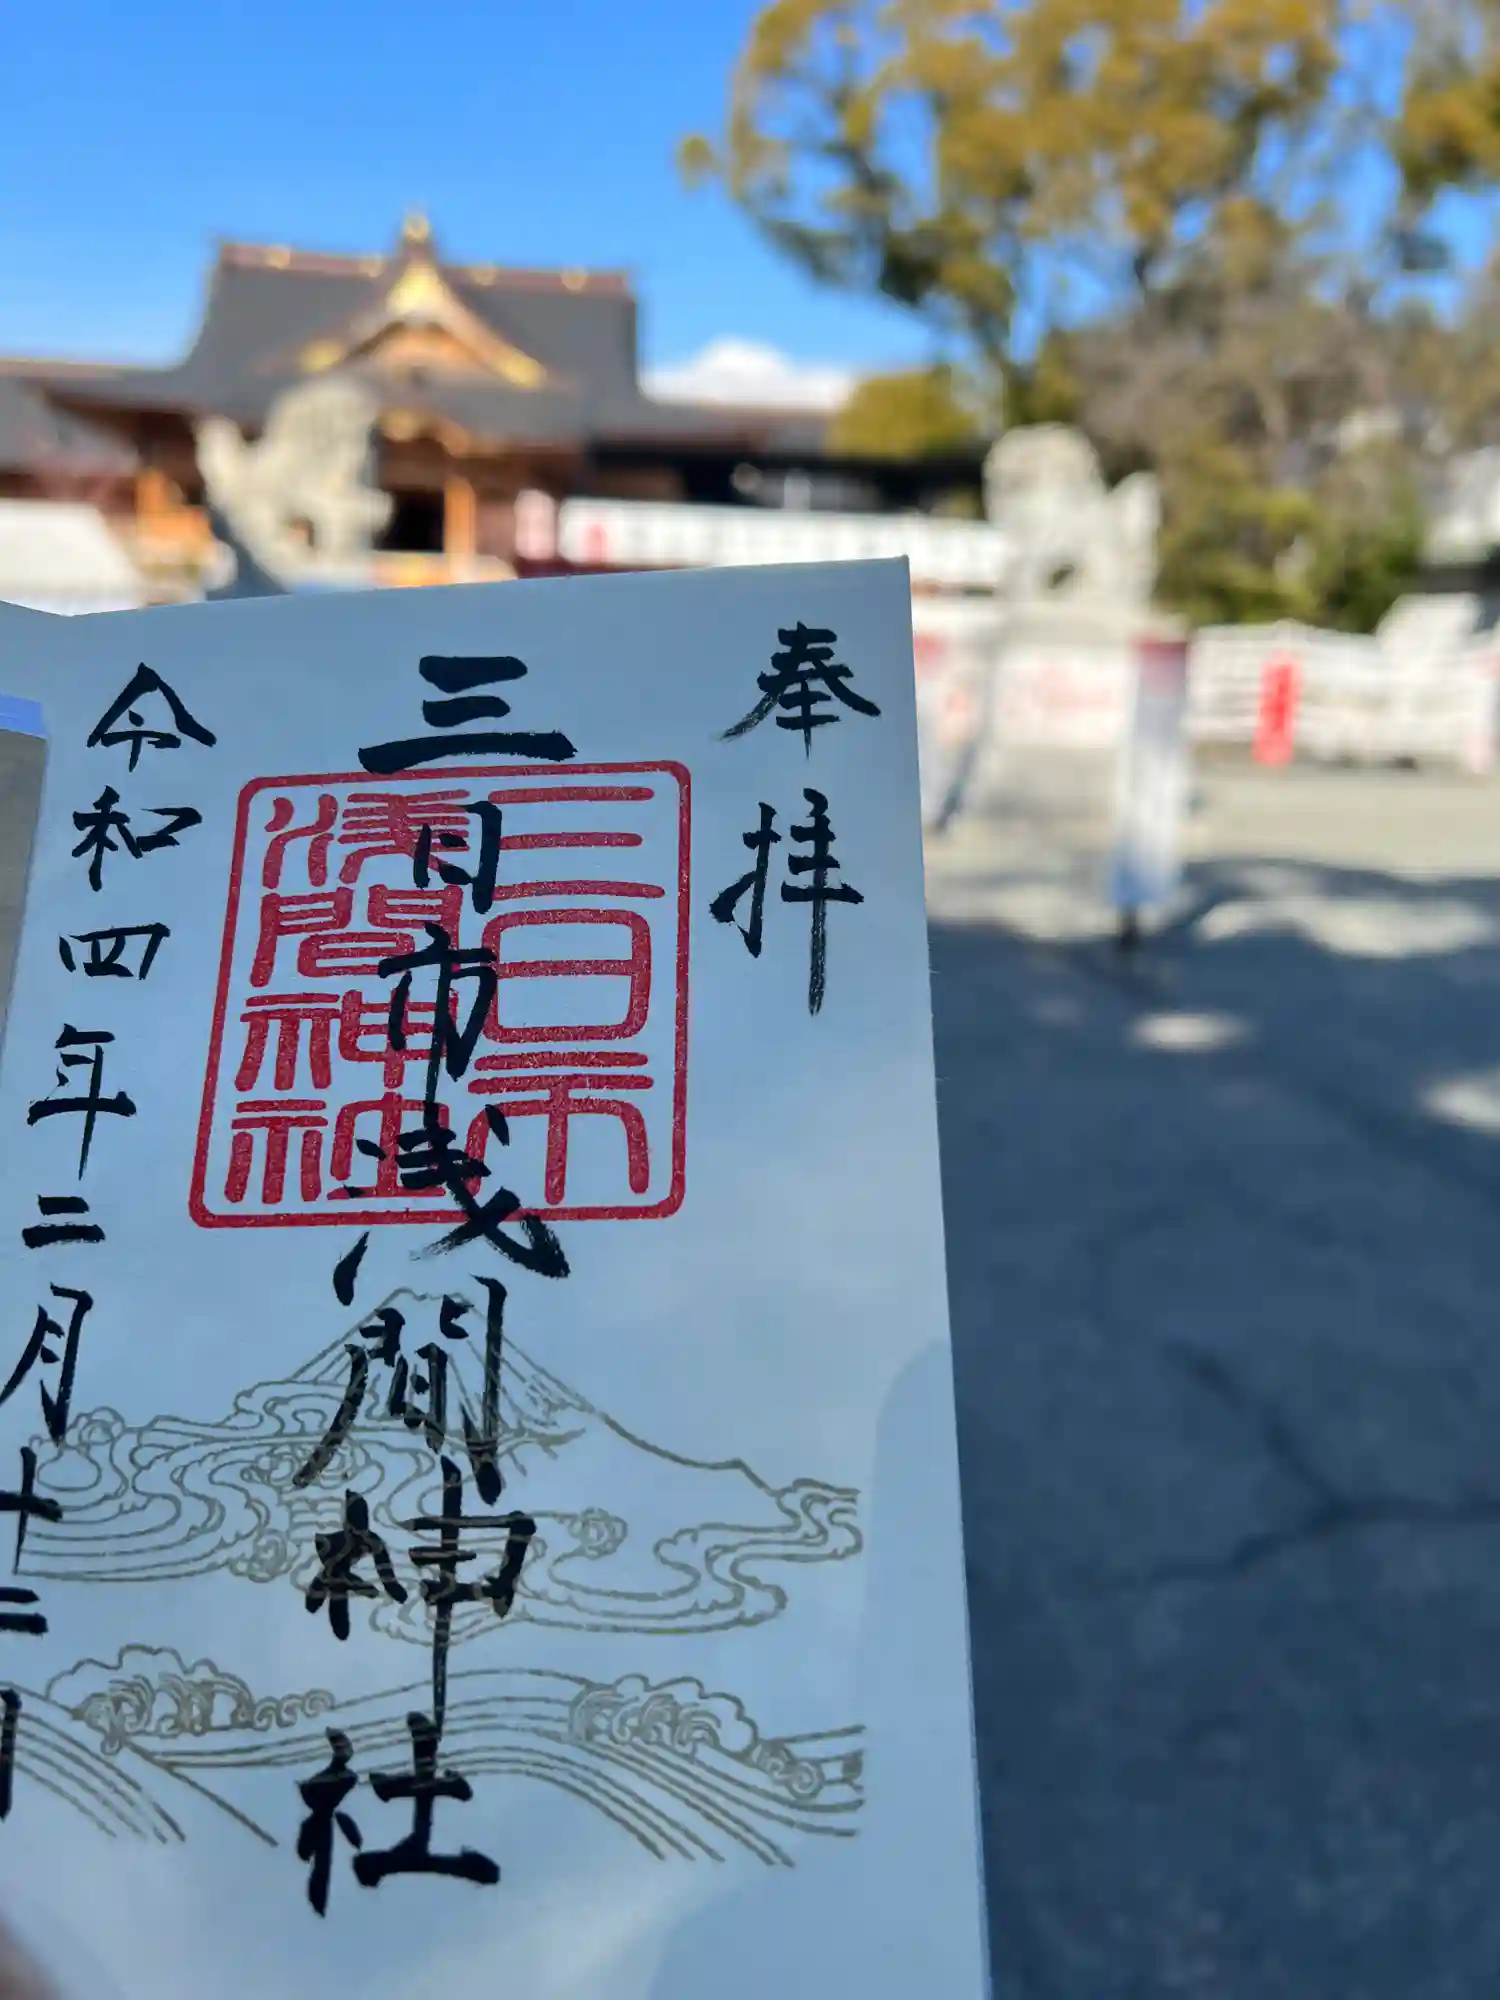 奉拝
三日市浅間神社
三日市
浅間神社
令和四年二月十二日